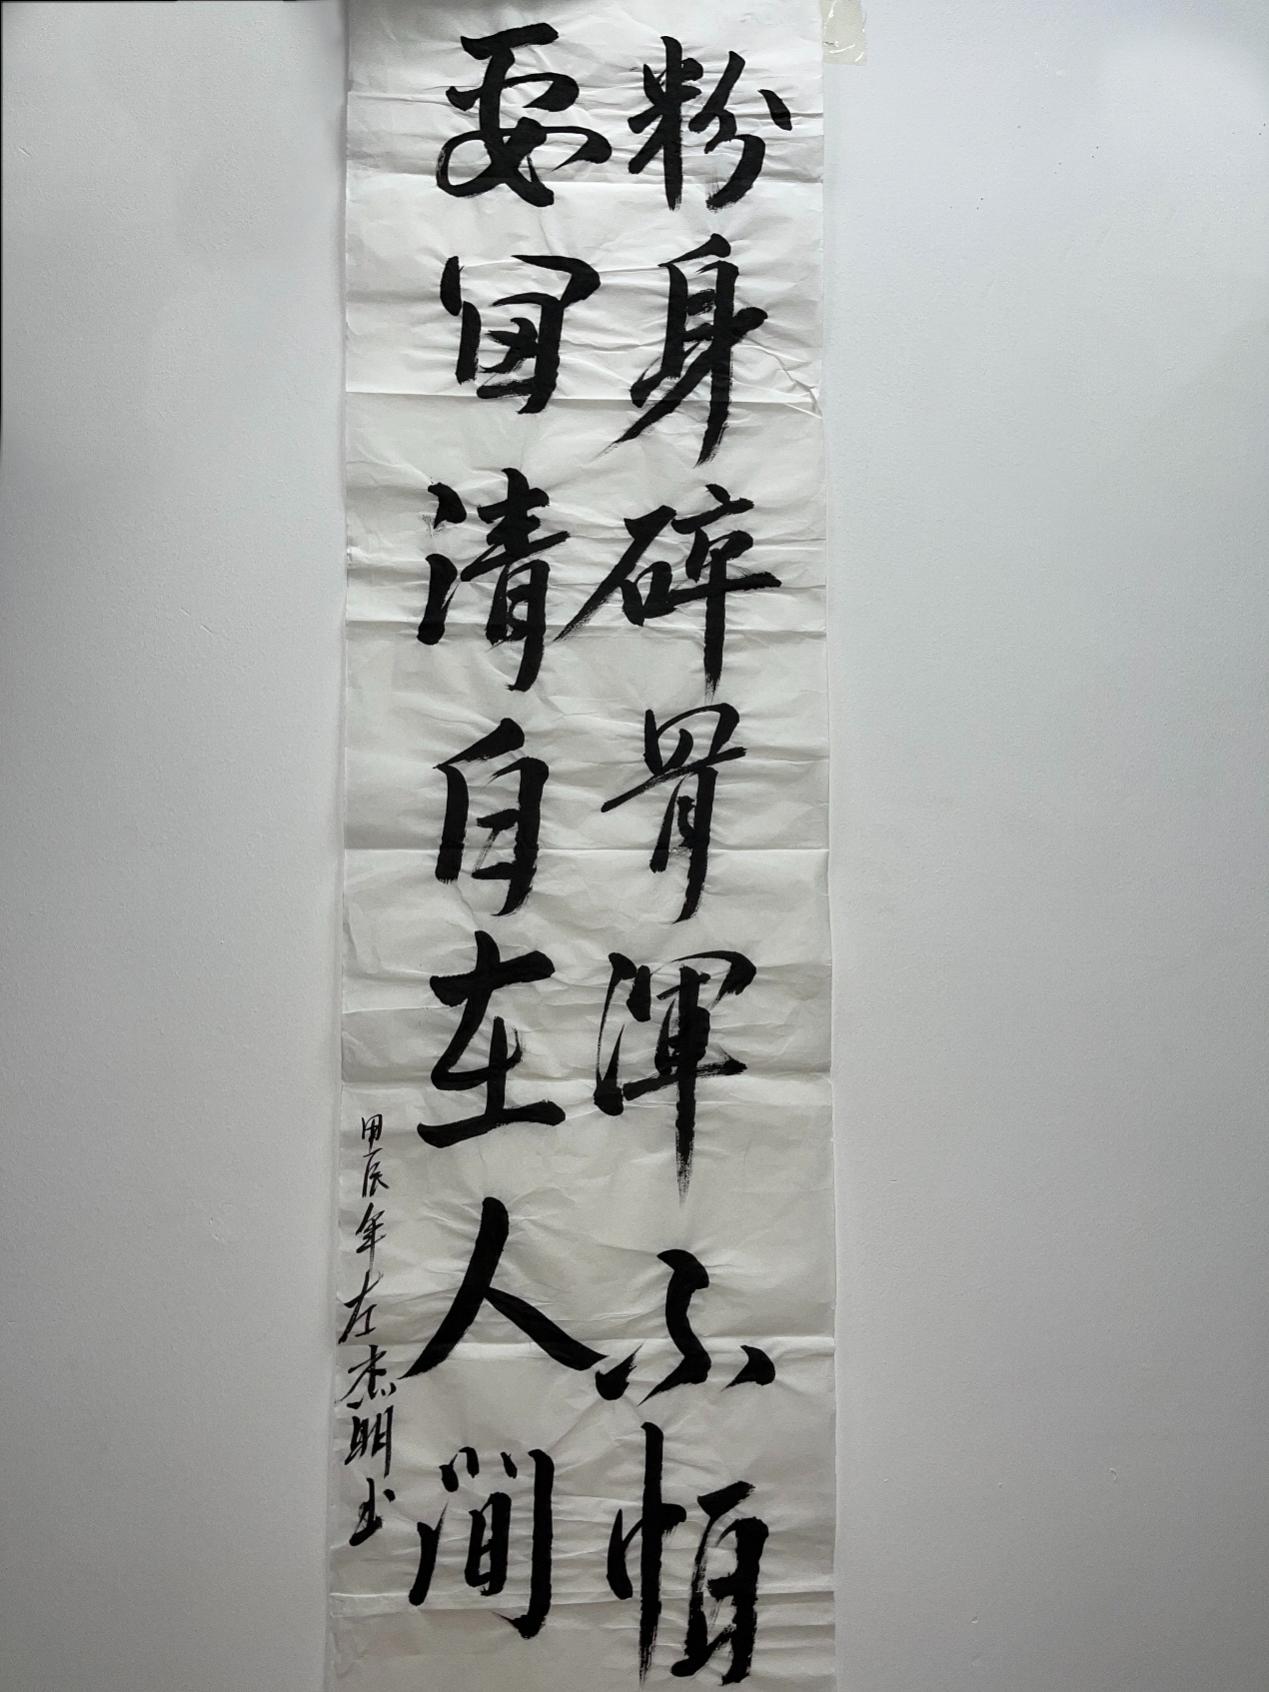 粉身碎骨渾不怕
要留清白在人間
甲辰年左杰明书